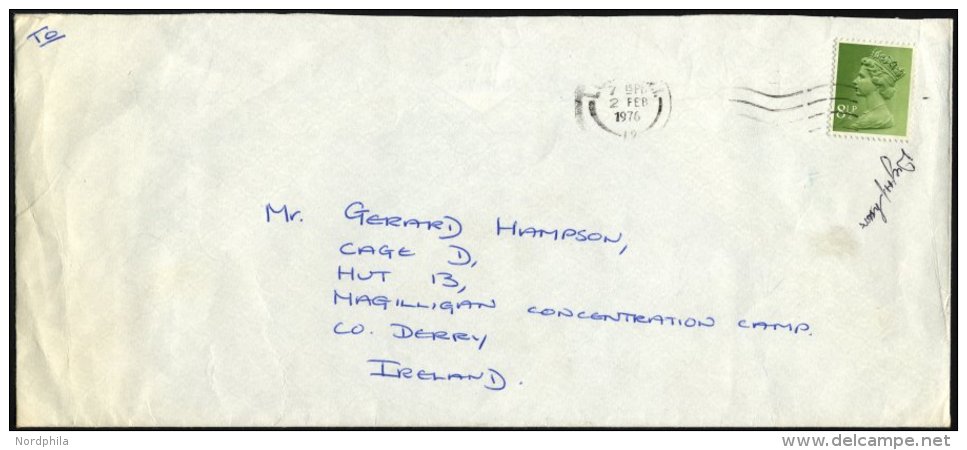 To
7 15PM
2 FEB
1976
8½P
Mr. GERARD HAMPSON,
CAGE D,
HUT 13,
MAGILLIGAN CONCENTRATION CAMP.
CO. DERRY
IRELAND.
Nordphila
www.delcampe.net